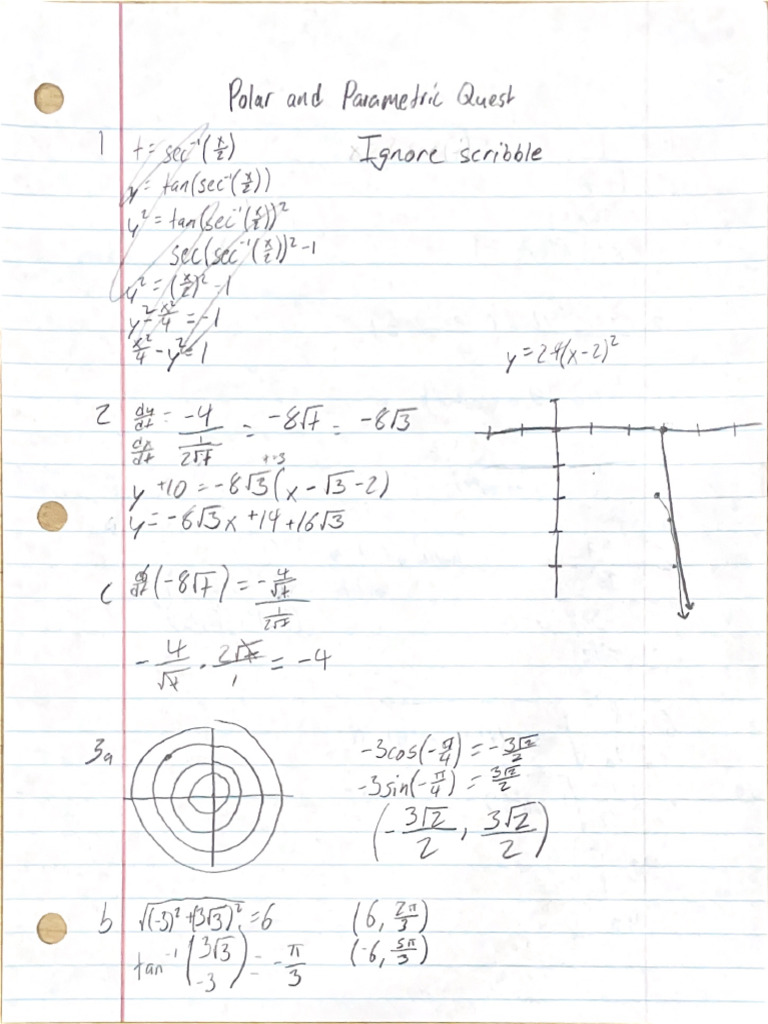 Polar and Parametric Quest
Ignore scribble
1 t = sec⁻¹(x/2)
y = tan(sec⁻¹(x/2))
y² = tan(sec⁻¹(x/2))²
sec(sec⁻¹(x/2))² - 1
y² = (x/2)² - 1
y² - x²/4 = -1
x²/4 - y² = 1
y = 2-4(x-2)²
2 dy/dt / dx/dt = -4 / (1/(2√t)) = -8√t = -8√3
t=3
y + 10 = -8√3(x - √3 - 2)
y = -8√3x + 14 + 16√3
c d/dt(-8√t) = -4/√t / (1/(2√t))
-4/√t · 2√t/1 = -4
3a
-3cos(-π/4) = -3√2/2
-3sin(-π/4) = 3√2/2
(-3√2/2, 3√2/2)
b √((-3)² + (3√3)²) = 6
(6, 2π/3)
tan⁻¹(3√3/-3) = -π/3
(-6, 5π/3)